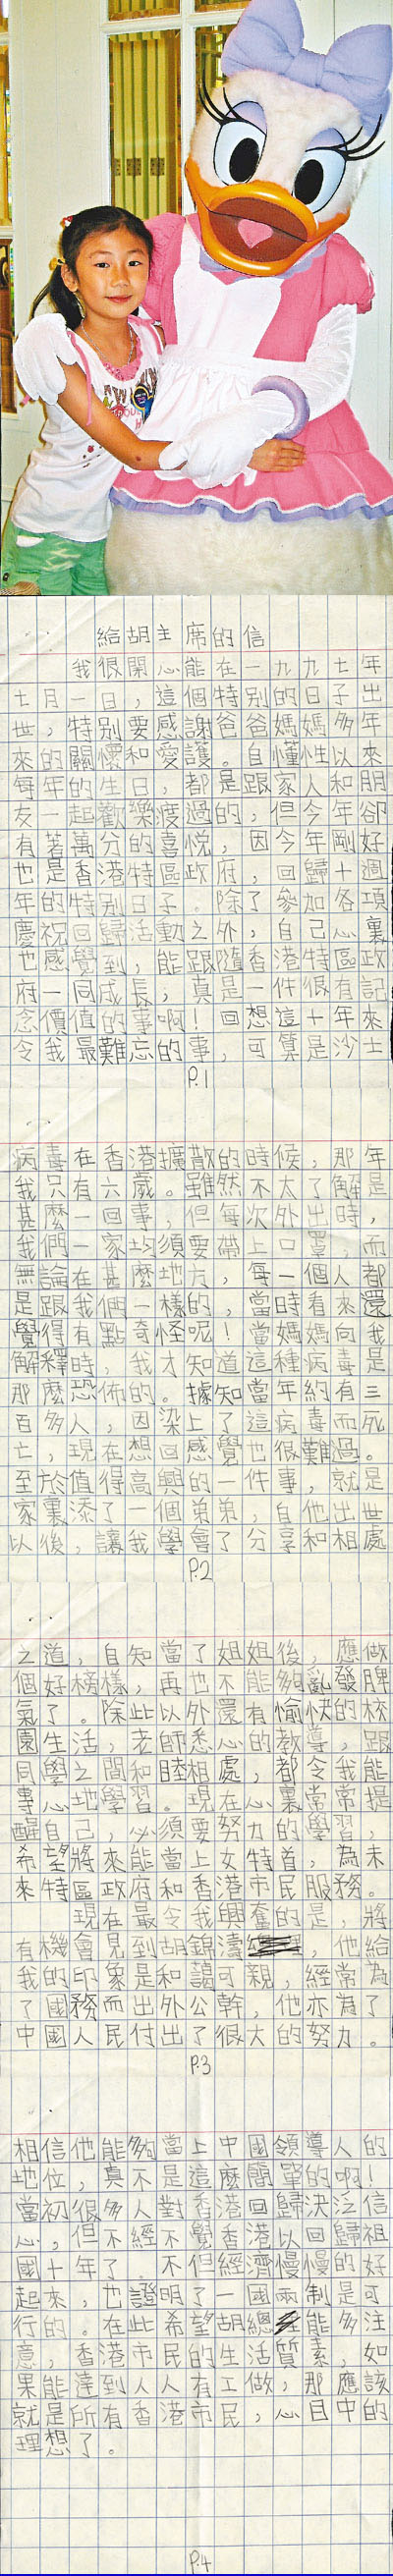 給胡主席的信
我很開心能在一九九七年
七月一日，這個特別的日子出
世，特別要感謝爸爸媽媽多年
來的關懷和愛護。自懂性以來
每年的生日，都是跟家人和朋
友一起歡樂渡過的，但今年卻
有著萬分的喜悅，因今年剛好
也是香港特區政府，回歸十週
年的特別日子。除了參加各項
慶祝回歸活動之外，自己心裏
也感覺到，能跟隨香港特區政
府一同成長，真是一件很有記
念價值的事啊！回想這十年來
令我最難忘的事，可算是沙士
P.1
病毒在香港擴散的時候，那年
我只有六歲。雖然不太了解是
甚麼一回事，但每次外出時，
我們一家均須要帶上口罩，而
無論在甚麼地方，每一個人都
是跟我們一樣的，當時看來還
覺得有點奇怪呢！當媽媽向我
解釋時，我才知道這種病毒是
那麼恐佈的。據知當年約有三
百多人，因染上了這病毒而死
亡，現在想回感覺也很難過。
至於值得高興的一件事，就是
家裏添了一個弟弟，自他出世
以後，讓我學會了分享和相處
P.2
之道，自知當了姐姐後，應做
個好榜樣，再也不能夠亂發脾
氣了。除此以外還有愉快的校
園生活，老師悉心的教導，跟
同學之間和睦相處，都令我能
專心地學習。現在心裏常常提
醒自己，必須要努力的學習，
希望將來能當上女特首，為未
來特區政府和香港市民服務。
現在最令我興奮的是，將
有機會見到胡錦濤，他給
我的印象是和藹可親，經常為
了國務而出外公幹，他亦為了
中國人民付出了很大的努力。
P.3
相信他能夠當上中國領導人的
地位，真不是這麼簡單的啊！
當初很多人對香港回歸決泛信
心，但不經不覺香港以回歸祖
國十年了。不但經濟慢慢的好
起來，也證明了一國兩制是可
行的。在此希望胡總能多注
意，香港市民的生活質素，如
果能達到人人有工做，那應該
就是所有香港市民，心目中的
理想了。
P.4